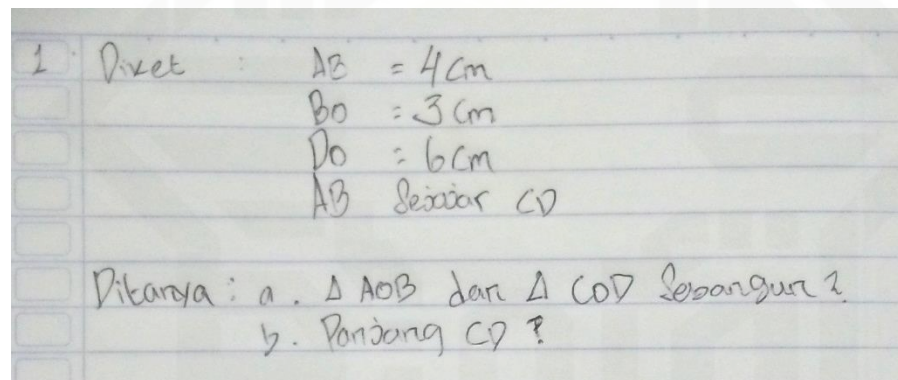 1 Diket : AB = 4 cm
BO = 3 cm
DO = 6 cm
AB Sejajar CD
Ditanya : a. Δ AOB dan Δ COD Sebangun ?
b. Panjang CD ?